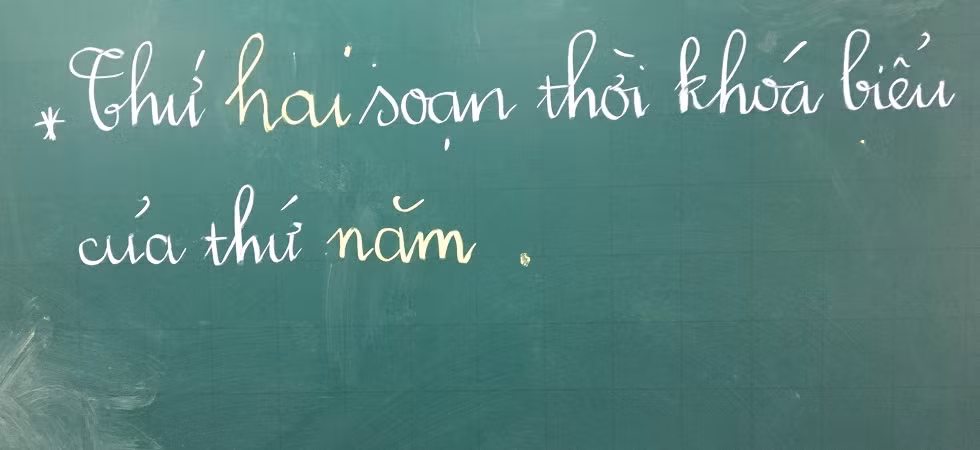 * Thứ hai soạn thời khoá biểu
của thứ năm .